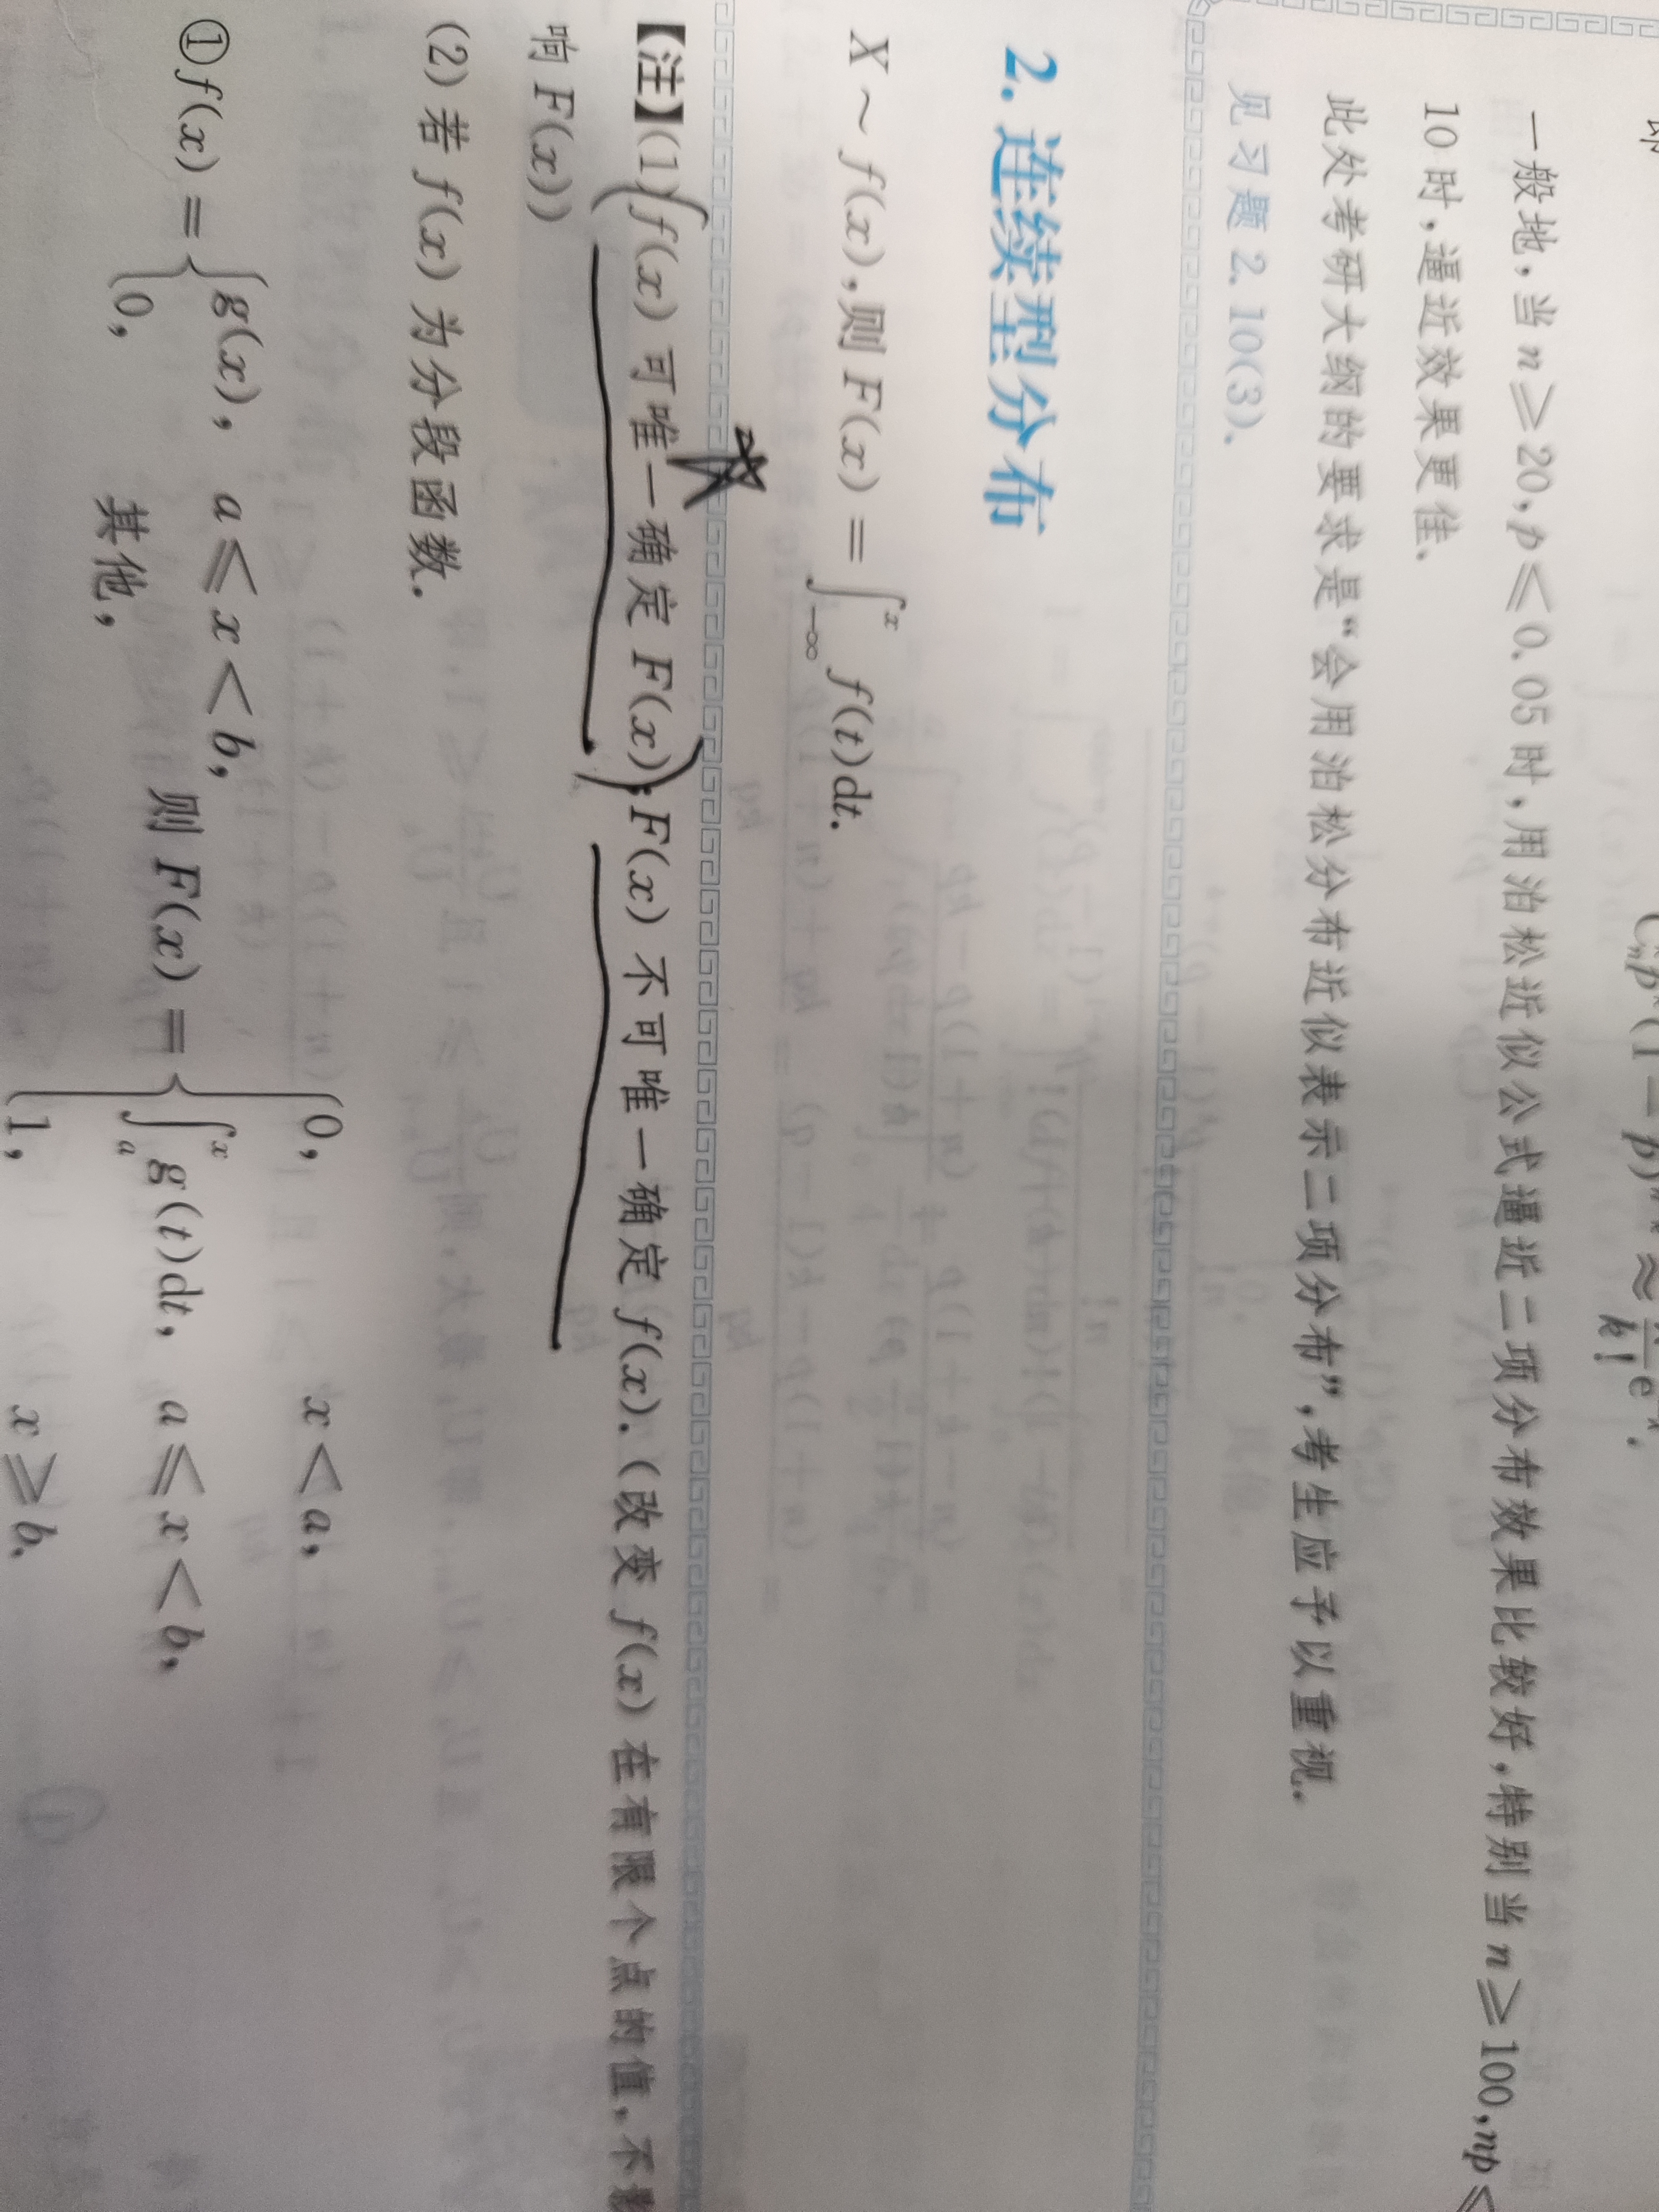 C p (1 − p) ≈ k! e .
一般地,当 n ≥ 20, p ≤ 0.05 时,用泊松近似公式逼近二项分布效果比较好,特别当 n ≥ 100, np ≤
10 时,逼近效果更佳.
此处考研大纲的要求是“会用泊松分布近似表示二项分布”,考生应予以重视.
见习题 2.10(3).
2. 连续型分布
X ~ f(x),则 F(x) = ∫_{-∞}^{x} f(t)dt.
【注】(1) f(x) 可唯一确定 F(x);F(x) 不可唯一确定 f(x).(改变 f(x) 在有限个点的值,不影
响 F(x))
(2) 若 f(x) 为分段函数.
① f(x) = { g(x), a ≤ x < b, 0, 其他, 则 F(x) = { 0, x < a, ∫_{a}^{x} g(t)dt, a ≤ x < b, 1, x ≥ b.